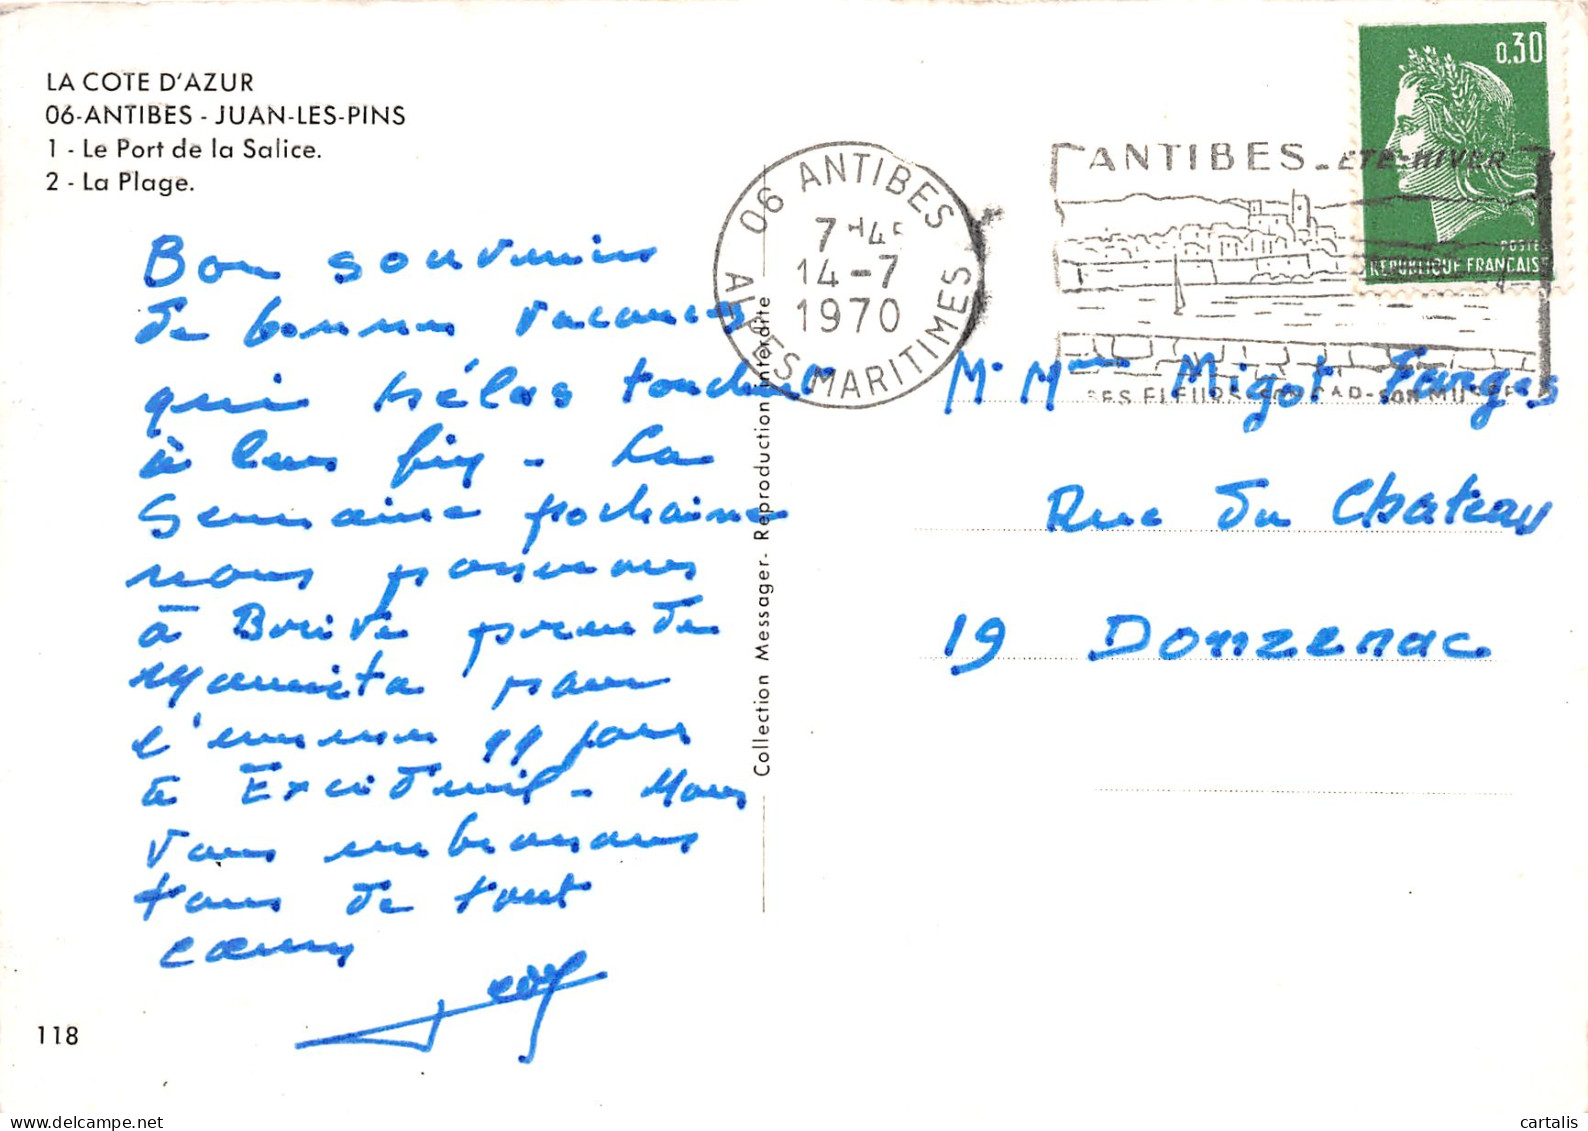 LA COTE D'AZUR
06-ANTIBES - JUAN-LES-PINS
1 - Le Port de la Salice.
2 - La Plage.
Bon souvenirs
de bonnes vacances
qui hélas touchent
à leur fin - La
Semaine prochaine
nous passerons
à Brive prendre
pour
l'emmener 99 jours
à Excideuil - Nous
vous embrassons
tous de tout
cœur
118
Collection Messager - Reproduction interdite
06 ANTIBES
7H45
14-7
1970
ALPES MARITIMES
ANTIBES - ETE-HIVER
SES FLEURS SON CAP-SON MUSEE
0,30
POSTES
REPUBLIQUE FRANÇAISE
Mr Mme Migot Farges
Rue du Chateau
19 Donzenac
cartalis